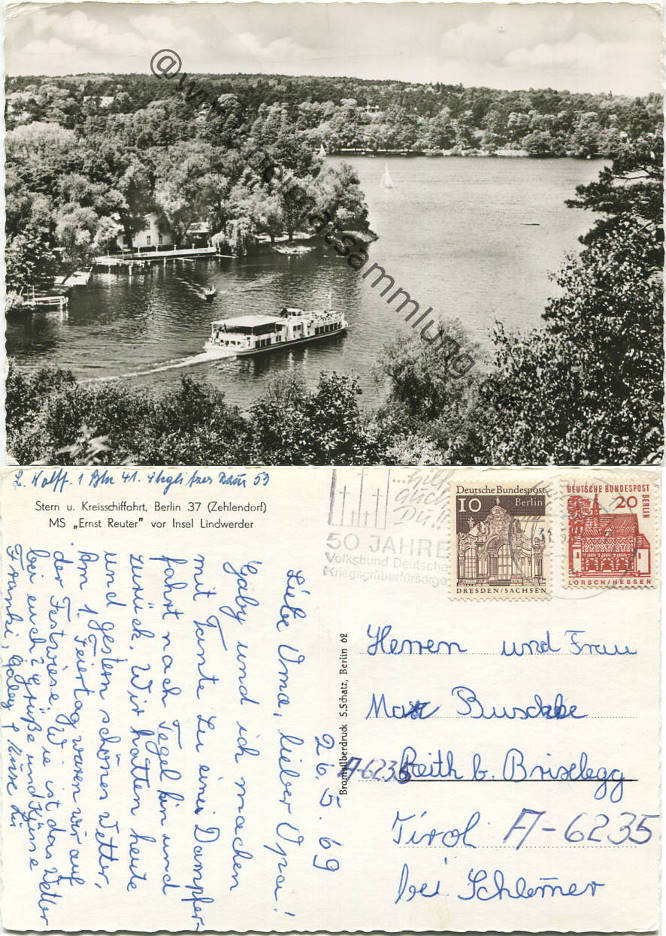 @w
Sammlung
L. Wolff. 1 Bln 41. Steglitzer Damm 53
Stern u. Kreisschiffahrt, Berlin 37 (Zehlendorf)
MS „Ernst Reuter" vor Insel Lindwerder
...hilf
auch
Du!!
50 JAHRE
Volksbund Deutsche
Kriegsgräberfürsorge
Deutsche Bundespost
10 Berlin
DRESDEN/SACHSEN
DEUTSCHE BUNDESPOST
BERLIN
20
LORSCH/HESSEN
26.5.69
Liebe Oma, lieber Opa!
Gaby und ich machen
mit Tante Lu eine Dampfer-
fahrt nach Tegel hin und
zurück. Wir hatten heute
und gestern schönes Wetter.
Am 1. Feiertag waren wir auf
der Festwiese. Wie ist das Wetter
bei euch? Grüße und Küsse
Franki, Gaby
Bromsilberdruck S. Schatz, Berlin 62
Herren und Frau
Max Buschke
A-6235 Reith b. Brixlegg
Tirol A-6235
bei Schlemer